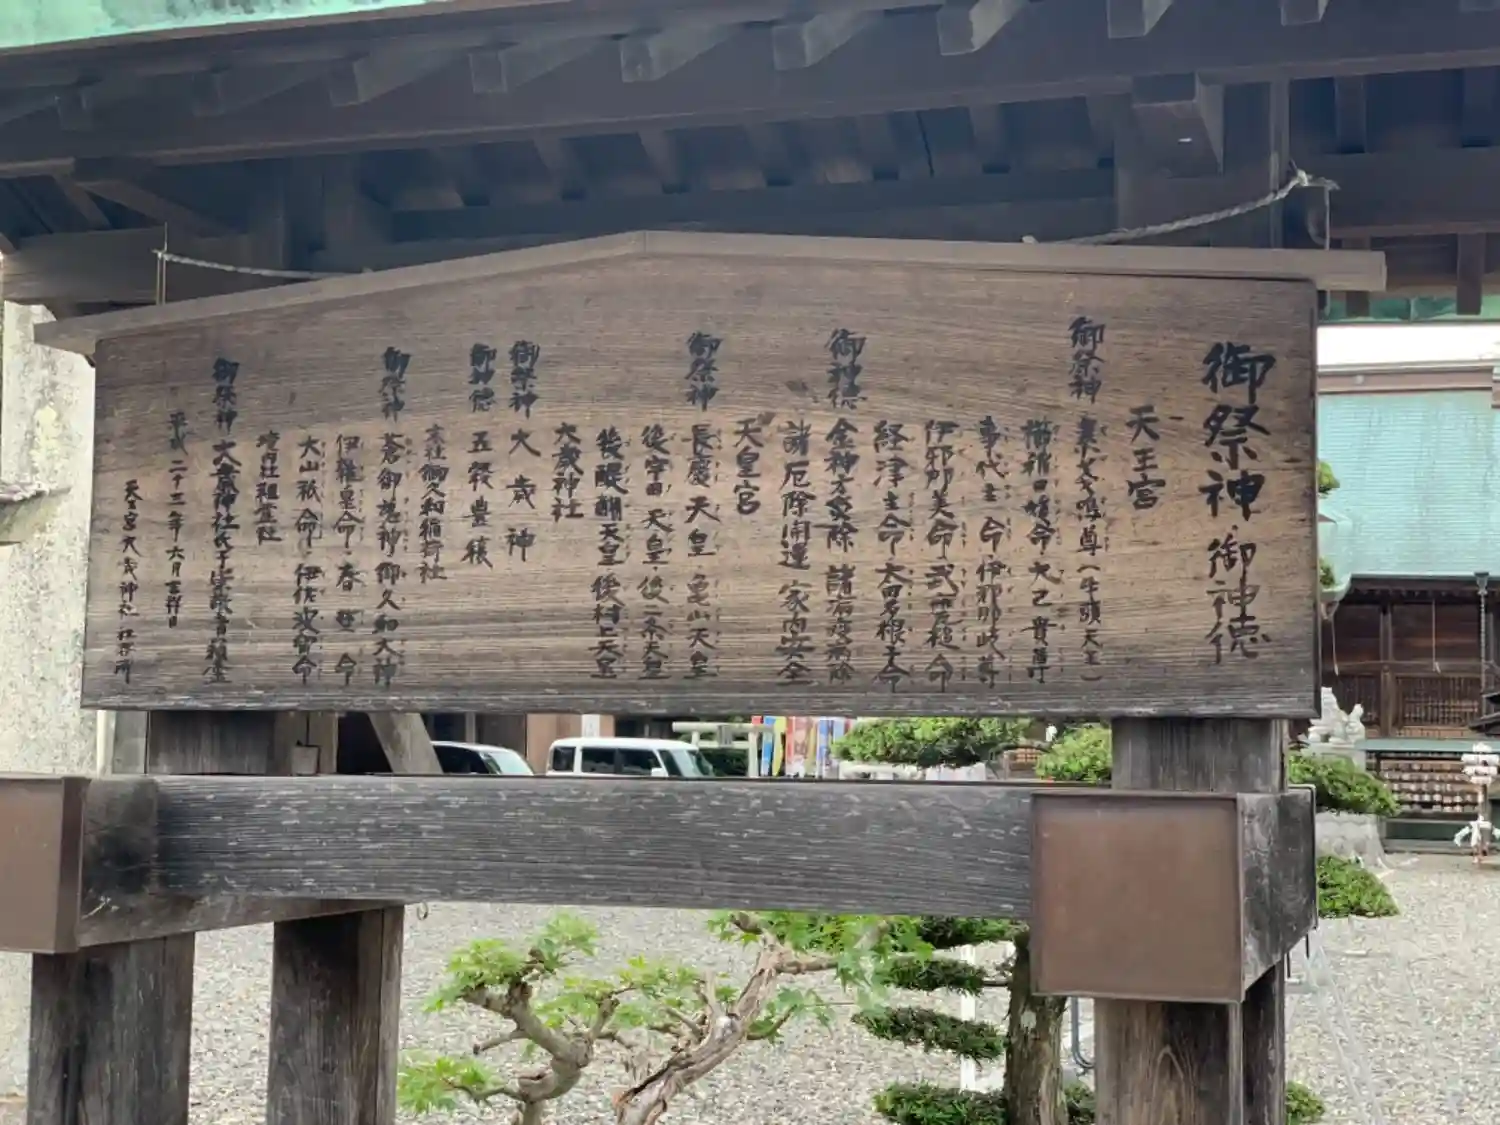 御祭神・御神徳
天王宮
御祭神 素戔嗚尊(牛頭天王)
櫛稲田媛命 大己貴尊
事代主命 伊邪那岐尊
伊邪那美命・武甕槌命
経津主命 大田多根主命
御神徳 金神方災除 諸病疫病除
諸厄除開運 家内安全
天皇宮
御祭神 長慶天皇 亀山天皇
後宇田天皇 後二条天皇
後醍醐天皇 後村上天皇
大歳神社
御祭神 大歳神
御神徳 五穀豊穣
末社 御久和稲荷社
御祭神 蒼御魂神 御久和大神
伊雑皇命・春日命
大山祇命・伊佐波留命
境内社祖霊社
御祭神 大歳神社氏子
平成二十三年六月吉祥日
天王宮大歳神社 社務所